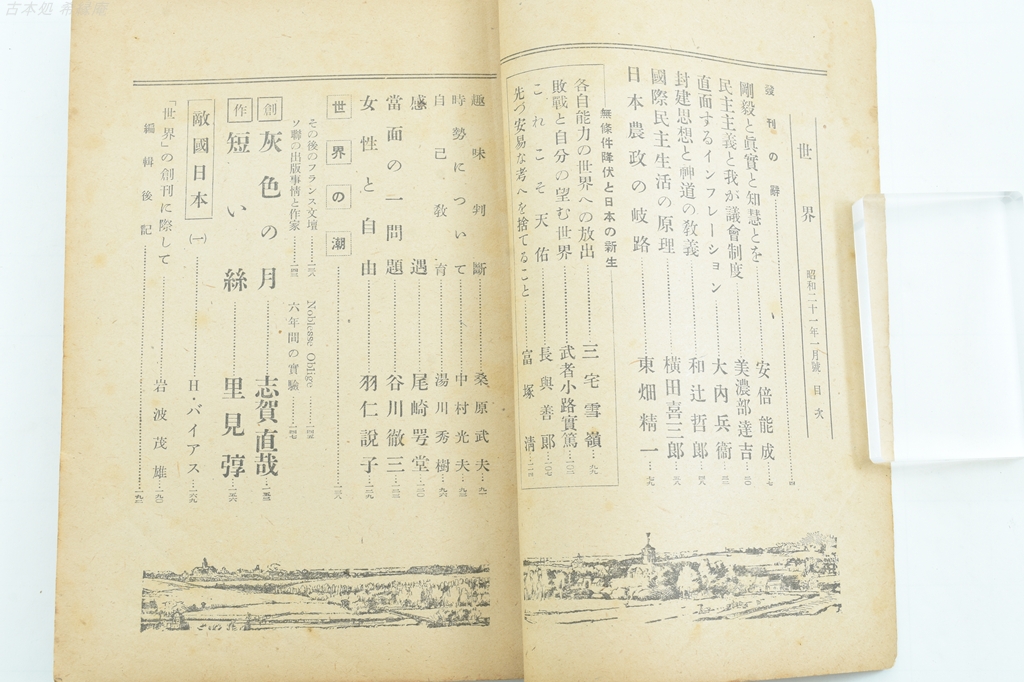 古本処
世界
昭和二十一年一月號 目次
發刊の辭……四
剛毅と眞實と知慧とを……安倍能成……七
民主主義と我が議會制度……美濃部達吉……二〇
直面するインフレーション……大內兵衞
封建思想と神道の敎義……和辻哲郞……四八
國際民主生活の原理……橫田喜三郞
日本農政の岐路……東畑精一……七九
無條件降伏と日本の新生
各自能力の世界への放出……三宅雪嶺……九九
敗戰と自分の望む世界……武者小路實篤……一〇二
これこそ天佑……長與善郞……一〇七
先づ安易な考へを捨てること……富塚淸……一一四
趣味判斷……桑原武夫……九一
時勢について……中村光夫……九三
自己敎育……湯川秀樹……九六
感遇……尾崎咢堂……一二〇
當面の一問題……谷川徹三……一二三
女性と自由……羽仁說子……一二九
世界の潮……一三八
その後のフランス文壇……一三八
ソ聯の出版事情と作家……一四三
Noblesse Oblige……一四五
六年間の實驗……一四七
創作
灰色の月……志賀直哉……一五三
短い絲……里見弴……一五六
敵國日本(一)……H・バイアス……一六九
「世界」の創刊に際して……岩波茂雄……一九〇
編輯後記……一九二